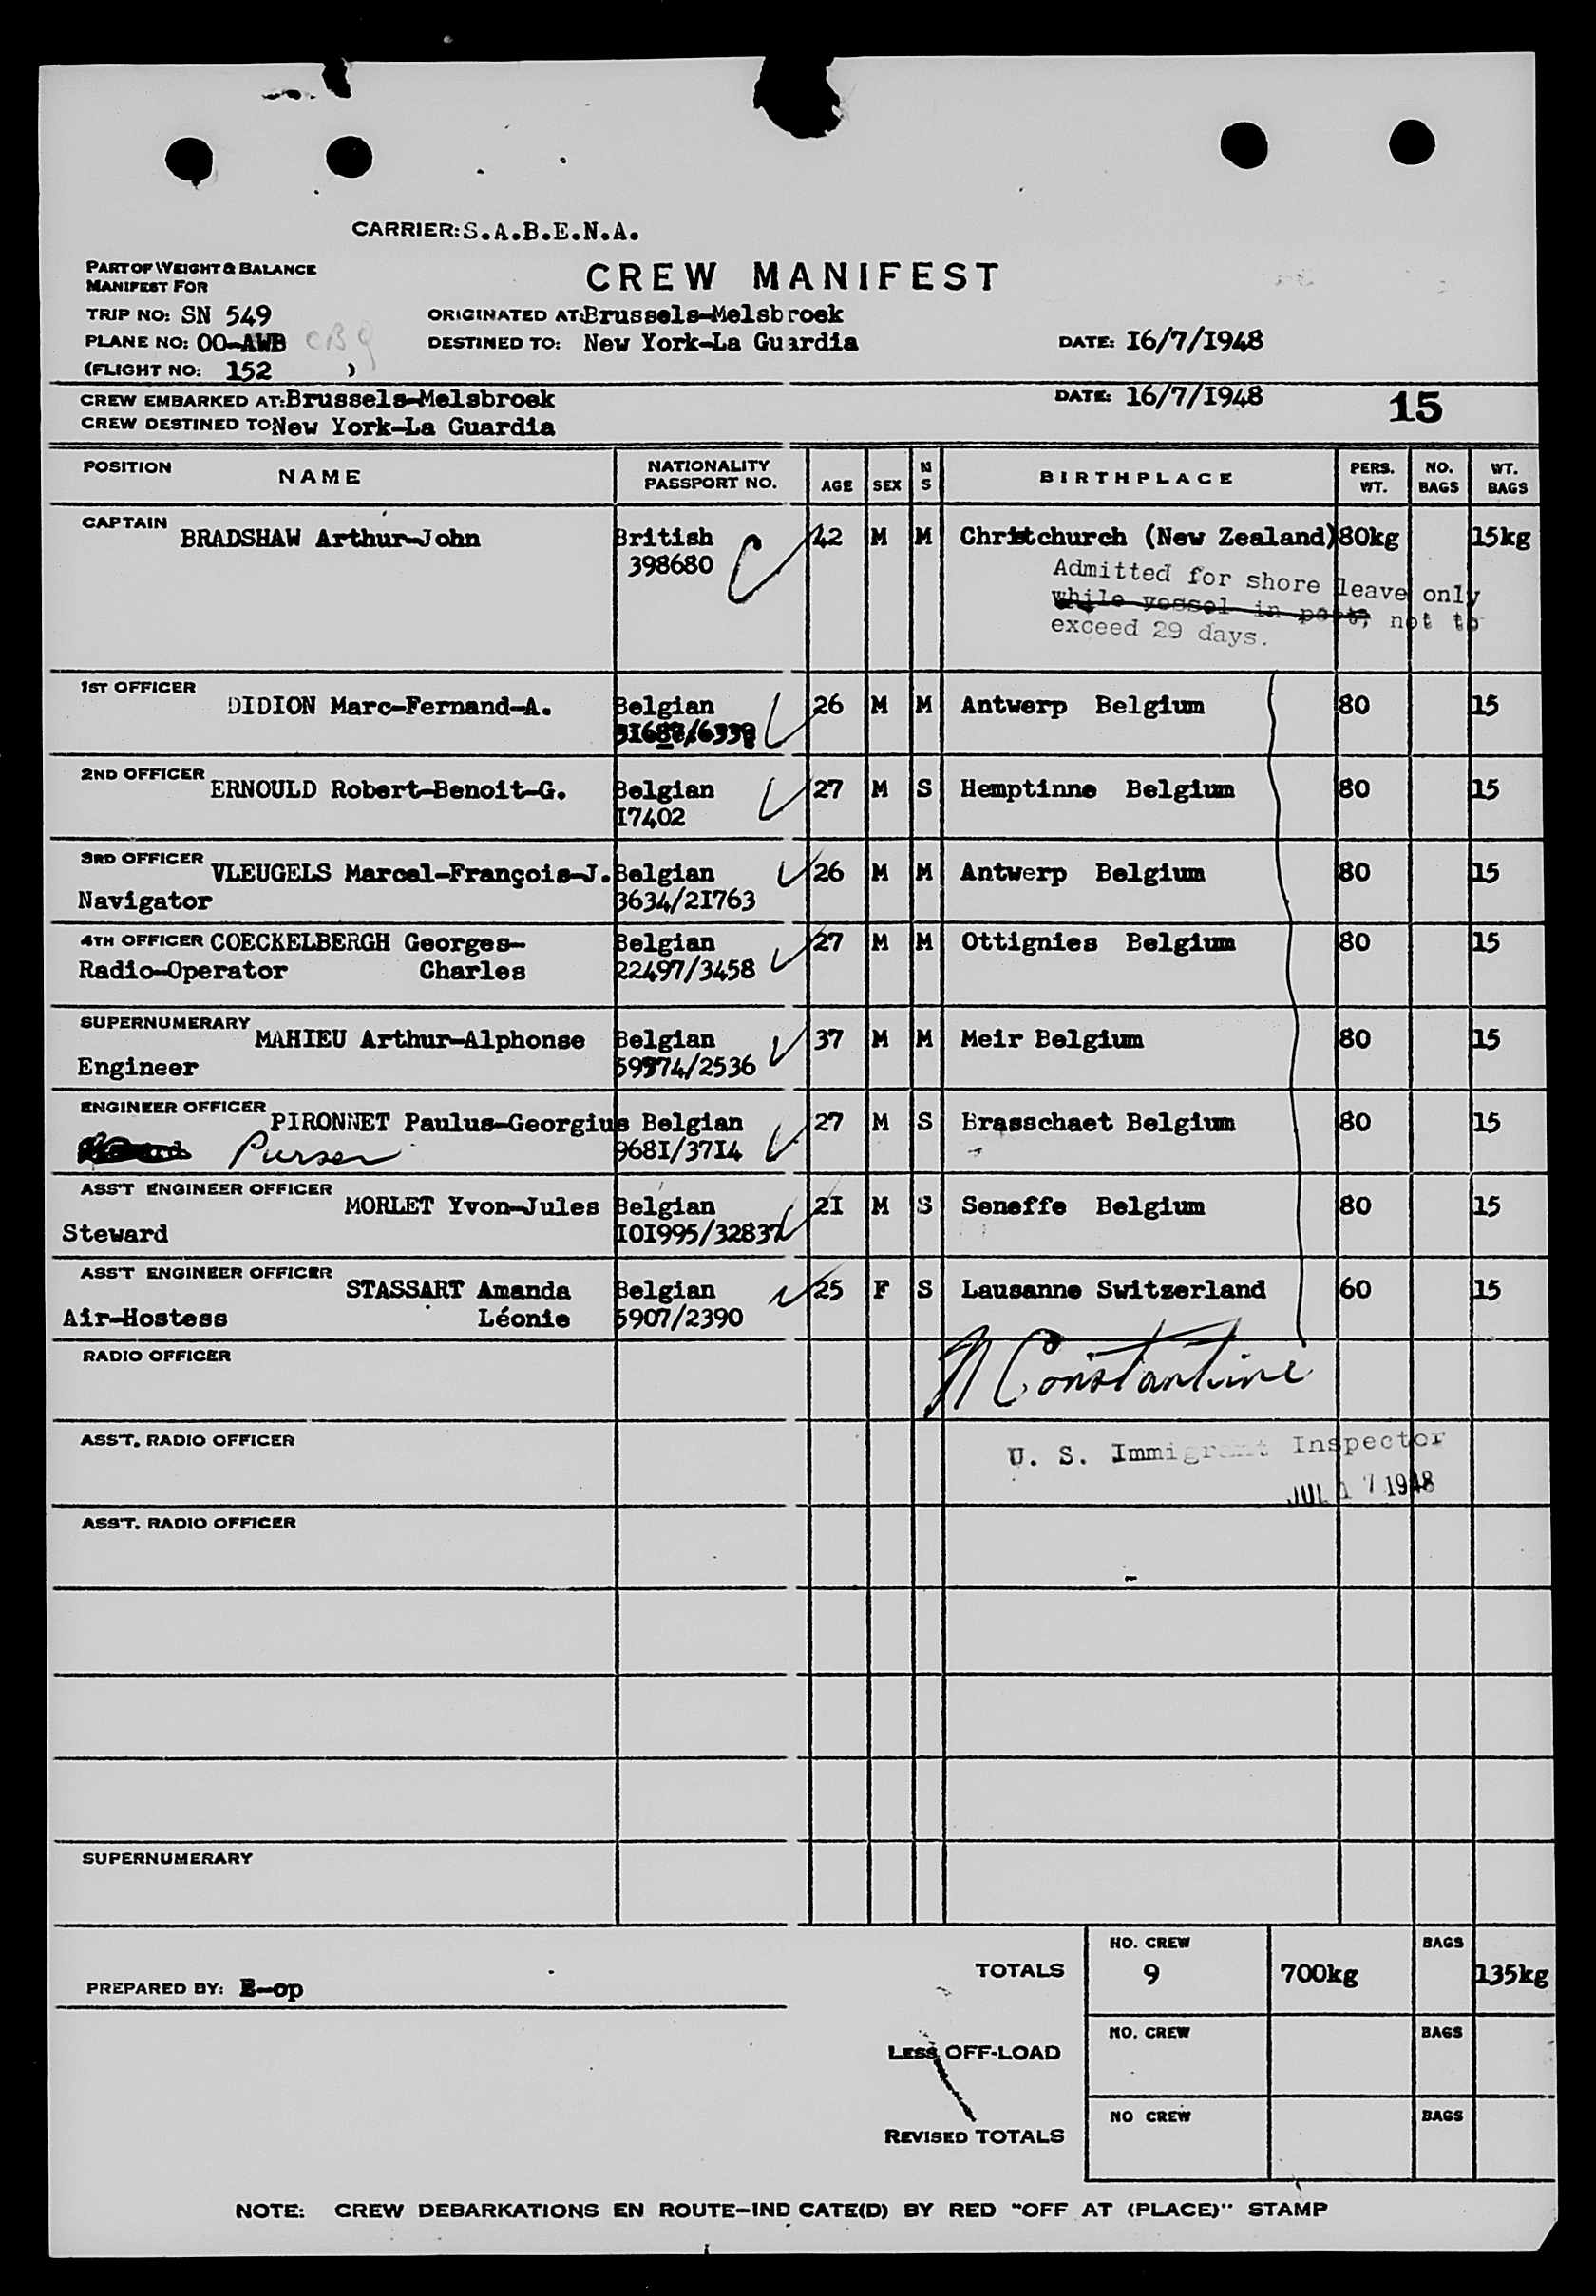 CARRIER: S.A.B.E.N.A.
PART OF WEIGHT & BALANCE
MANIFEST FOR
CREW MANIFEST
TRIP NO: SN 549
ORIGINATED AT: Brussels-Melsbroek
PLANE NO: OO-AWB CBG
DESTINED TO: New York-La Guardia
DATE: I6/7/I948
(FLIGHT NO: 152 )
CREW EMBARKED AT: Brussels-Melsbroek
DATE: 16/7/I948
15
CREW DESTINED TO New York-La Guardia
POSITION NAME NATIONALITY PASSPORT NO. AGE SEX M S BIRTHPLACE PERS. WT. NO. BAGS WT. BAGS
CAPTAIN BRADSHAW Arthur-John British 42 M M Christchurch (New Zealand) 80kg 15kg
398680
Admitted for shore leave only
while vessel in port, not to
exceed 29 days.
1ST OFFICER DIDION Marc-Fernand-A. Belgian 26 M M Antwerp Belgium 80 15
2ND OFFICER ERNOULD Robert-Benoit-G. Belgian 27 M S Hemptinne Belgium 80 15
I7402
3RD OFFICER VLEUGELS Marcel-François-J. Belgian 26 M M Antwerp Belgium 80 15
Navigator 3634/2I763
4TH OFFICER COECKELBERGH Georges- Belgian 27 M M Ottignies Belgium 80 15
Radio-Operator Charles 22497/3458
SUPERNUMERARY MAHIEU Arthur-Alphonse Belgian 37 M M Meir Belgium 80 15
Engineer 59974/2536
ENGINEER OFFICER PIRONNET Paulus-Georgius Belgian 27 M S Brasschaet Belgium 80 15
Purser 968I/37I4
ASS'T ENGINEER OFFICER MORLET Yvon-Jules Belgian 2I M S Seneffe Belgium 80 15
Steward I0I995/32837
ASS'T ENGINEER OFFICER STASSART Amanda Belgian 25 F S Lausanne Switzerland 60 15
Air-Hostess Léonie 5907/2390
RADIO OFFICER
N Constantine
ASS'T. RADIO OFFICER
U. S. Immigrant Inspector
JUL 17 1948
ASS'T. RADIO OFFICER
SUPERNUMERARY
PREPARED BY: E-op
TOTALS NO. CREW 9 700kg BAGS 135kg
LESS OFF-LOAD NO. CREW BAGS
REVISED TOTALS NO CREW BAGS
NOTE: CREW DEBARKATIONS EN ROUTE-IND CATE(D) BY RED "OFF AT (PLACE)" STAMP